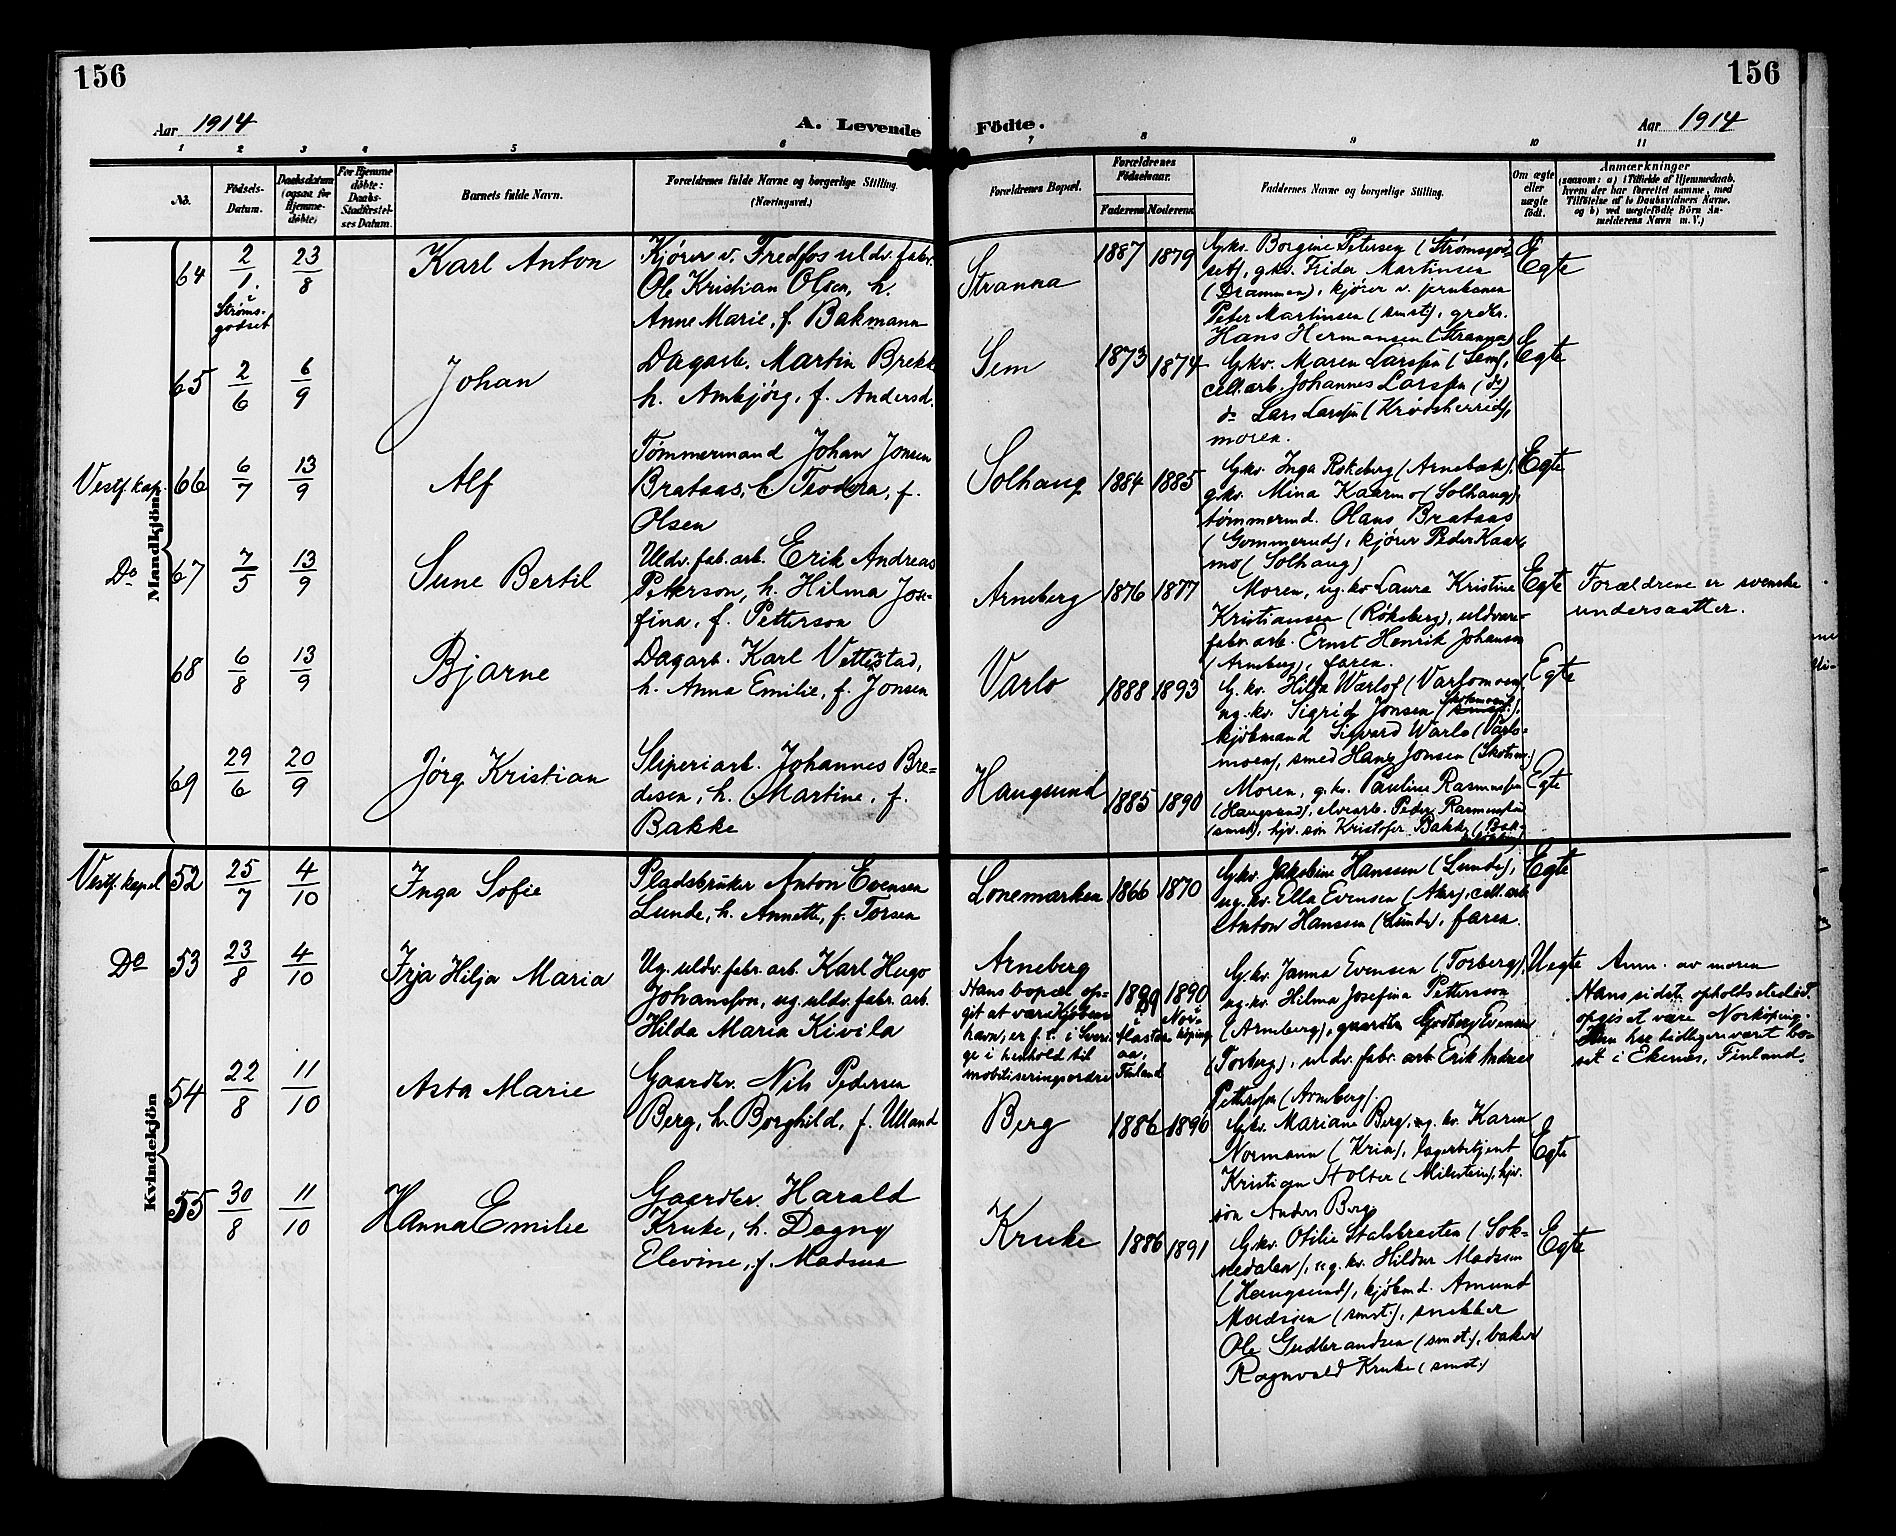 156
156
Aar 1914
A. Levende
Fødte.
Aar 1914
1 2 3 4 5 6 7 8 9 10 11
No.
Födsels-
Datum.
Daabsdatum
(ogsaa for
Hjemme-
döbte.)
For Hjemme
döbte:
Daabs-
Stadfæstel-
ses Datum.
Barnets fulde Navn.
Forældrenes fulde Navne og borgerlige Stilling.
(Næringsvei.)
Forældrenes Bopæl.
Forældrenes
Födselsaar.
Faderens Moderens
Faddernes Navne og borgerlige Stilling.
Om ægte
eller
uægte
födt.
Anmærkninger
(saasom: a) i Tilfælde af Hjemmedaab,
hvem der har forrettet samme, med
Tilföielse af to Daabsvidners Navne,
og b) ved uægtefödte Börn An-
melderens Navn m. V.)
Mandkjön
64
2/1.
i
Strøms-
godset
23/8
Karl Anton
Kjører v. Fredfos uldv. fabr.
Ole Kristian Olsen, h.
Anne Marie, f. Bakmann
Stranna
1887 1879
Gkv. Borgine Petersen (Strømsgod-
set), gkv. Frida Martinsen
(Drammen), kjører v.
Peter Martinsen (smst), grdbr.
Hans Hermansen (Stranna)
Egte
65
2/6
6/9
Johan
Dagarb. Martin Brekke
h. Ambjørg, f. Andersd.
Sem
1873 1874
Gkv. Maren Larssen (Sem),
cell.arb. Johannes Larssen (do)
do Lars Larssen (Krødsherred),
moren.
Egte
Vestf. kap.
66
6/7
13/9
Alf
Tømmermand Johan Jonsen
Brataas, h. Teodora, f.
Olsen
Solhaug
1884 1885
Gkv. Inga Røkeberg (Arnebæk),
gkv. Mina Kaarmo (Solhaug),
tømmermd. Olans Brataas
(Gommerud), kjører Peder Kaar-
mo (Solhaug)
Egte
Do
67
7/5
13/9
Sune Bertil
Uldv. fab. arb. Erik Andreas
Petterson, h. Hilma Jose-
fina, f. Petterson
Arneberg
1876 1877
Moren, ug. kv. Laura Kristine
Kristiansen (Røkeberg), uldvare-
fabr. arb. Ernst Henrik Johansen
(Arneberg), faren.
Egte
Forældrene er svenske
undersaatter.
68
6/8
13/9
Bjarne
Dagarb. Karl Vettestad,
h. Anna Emilie, f. Jonsen
Varlo
1888 1893
G. kv. Hilda Warlo (Varlomoen),
ug. kv. Sigrid Jonsen (Skotmoen),
kjøbmand Sigvard Warlo (Varlo-
moen), smed Hans Jonsen (Skotm.)
Egte
69
29/6
20/9
Jørg Kristian
Sliperiarb. Johannes Bre-
desen, h. Martine, f.
Bakke
Haugsund
1885 1890
Moren, g. kv. Pauline Rasmussen
(Haugsund), elvearb. Peder Rasmussen
(smst), hjv. søn Kristofer Bakke
Egte
Kvindekjön
Vestf. kapel
52
25/7
4/10
Inga Sofie
Pladsbruker Anton Evensen
Lunde, h. Annette, f. Torsen
Lonemarken
1866 1870
Gkv. Jakobine Hansen (Lunde),
ug. kv. Ella Evensen (Aker), cell. arb.
Anton Hansen (Lunde), faren.
Egte
Do
53
23/8
4/10
Irja Hilja Maria
Ug. uldv. fabr. arb. Karl Hugo
Johansson, ug. uldv. fabr. arb.
Hilda Maria Kivila
Arneberg
Hans bopæl op-
git at være Kjøben-
havn, er f. t. i Sveri-
ge i henhold til
mobiliseringsordre
1889
i
Finland
1890
Nor-
köping
G. kv. Janna Evensen (Torberg),
ug. kv. Hilma Josefina Pettersson
(Arneberg), gaardbr. Godberg Evensen
(Torberg), uldv. fabr. arb. Erik Andreas
Petterson (Arneberg).
Uegte
Anm. av moren
Hans sidste opholdssted
opgis at være Norköping.
Han har tidligere vært bo-
sat i Ekenes, Finland.
54
22/8
11/10
Asta Marie
Gaardbr. Nils Pedersen
Berg, h. Borghild, f. Ulland
Berg
1886 1896
Gkv. Mariane Berg, ug. kv. Karen
Normann (Kria), lagerbetjent
Kristian Holter (Milestein), hjv.
søn Anders Berg
Egte
55
30/8
11/10
Hanna Emilie
Gaardbr. Harald
Kruke, h. Dagny
Elevine, f. Madsen
Kruke
1886 1891
Gkv. Otilie Stalsbraaten (Sok-
nedalen), ug. kv. Hildur Madsen
(Haugsund), kjøbmd. Amund
Madsen (smst.), snekker
Ole Gudbrandsen (smst.), baker
Ragnvald Kruke (smst.)
Egte